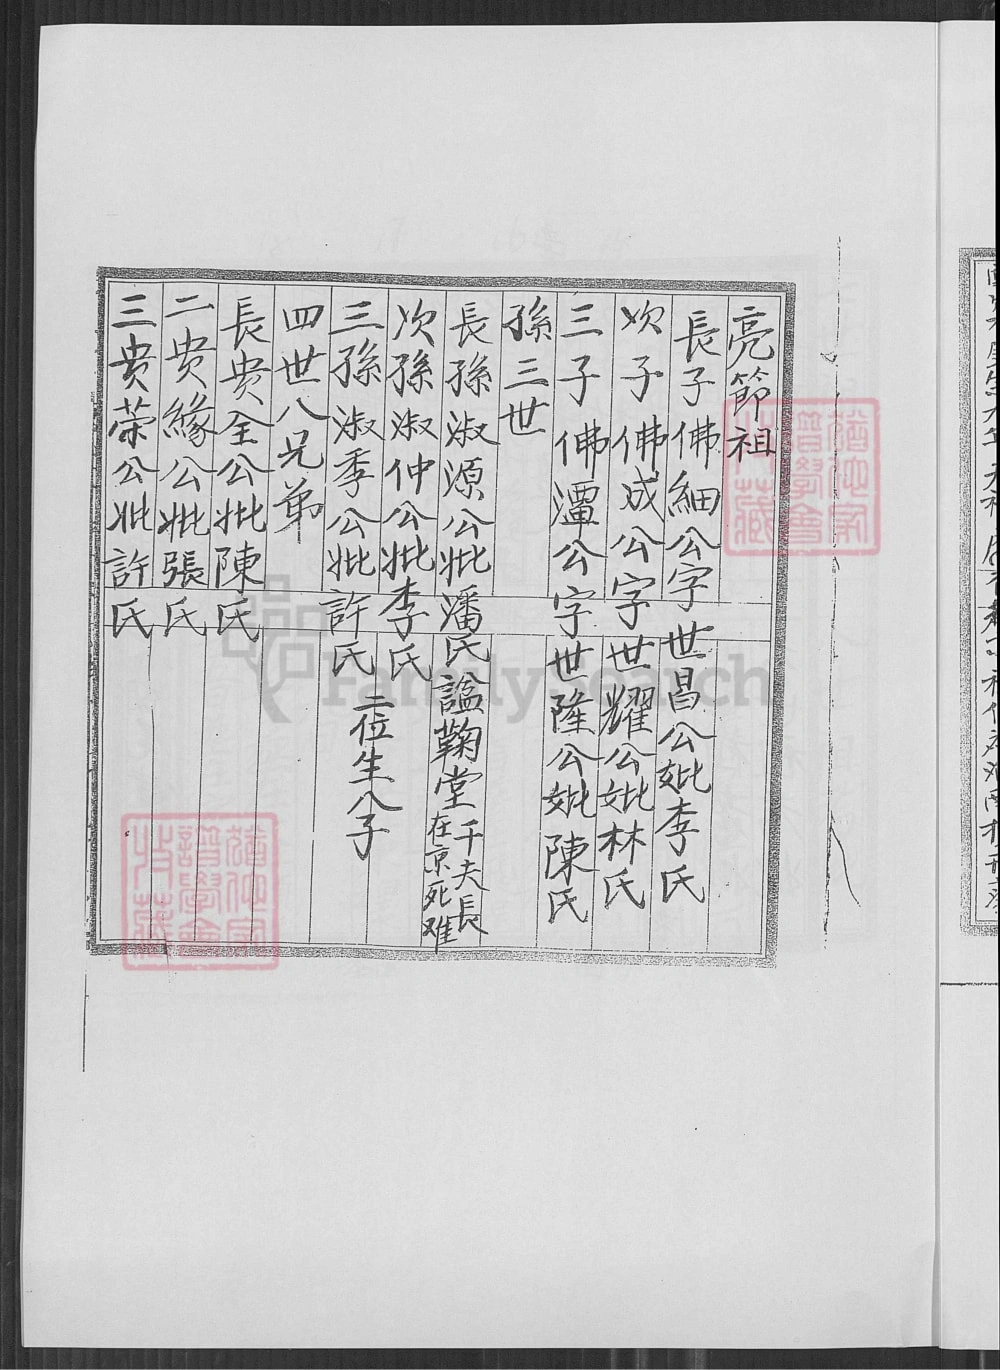 亮節祖
長子佛細公字世昌公妣李氏
次子佛成公字世耀公妣林氏
三子佛潭公字世隆公妣陳氏
孫三世
長孫淑源公妣潘氏諡鞠堂千夫長在京死难
次孫淑仲公妣李氏
三孫淑季公妣許氏 二位生八子
四世八兄弟
長贵全公妣陳氏
二贵緣公妣張氏
三贵荣公妣許氏
FamilySearch